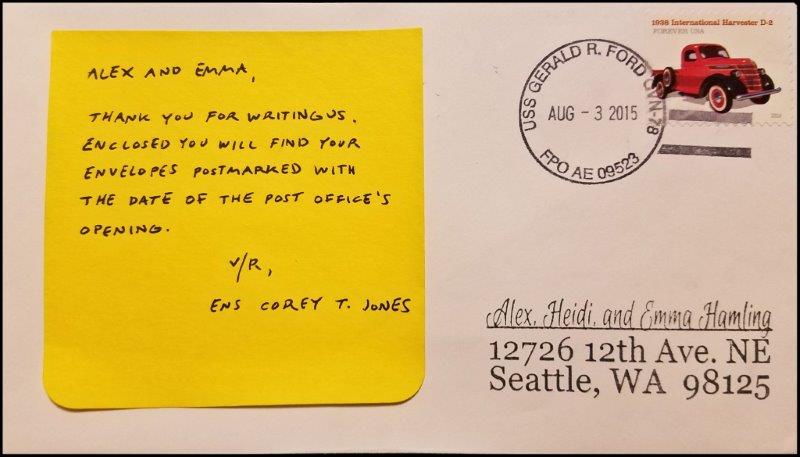 ALEX AND EMMA,
THANK YOU FOR WRITING US.
ENCLOSED YOU WILL FIND YOUR
ENVELOPES POSTMARKED WITH
THE DATE OF THE POST OFFICE'S
OPENING.
V/R,
ENS COREY T. JONES
1938 International Harvester D-2
FOREVER USA
USS GERALD R. FORD CVN-78
AUG - 3 2015
FPO AE 09523
Alex, Heidi, and Emma Hamling
12726 12th Ave. NE
Seattle, WA 98125